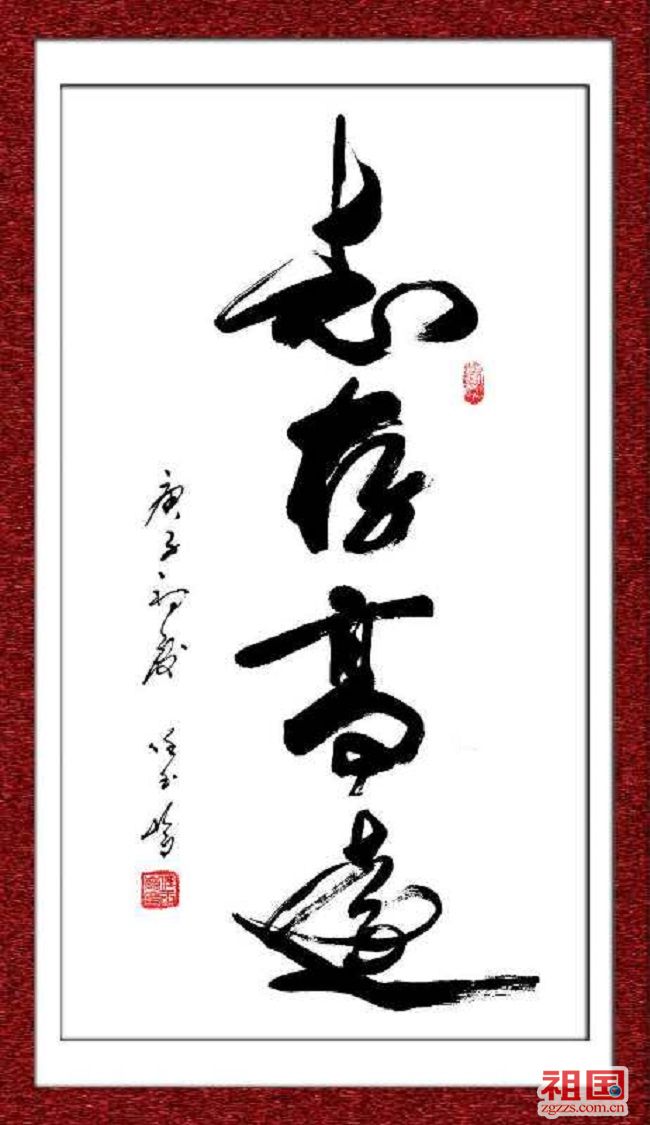 志存高遠
庚子初夏
祖国
zgzzs.com.cn